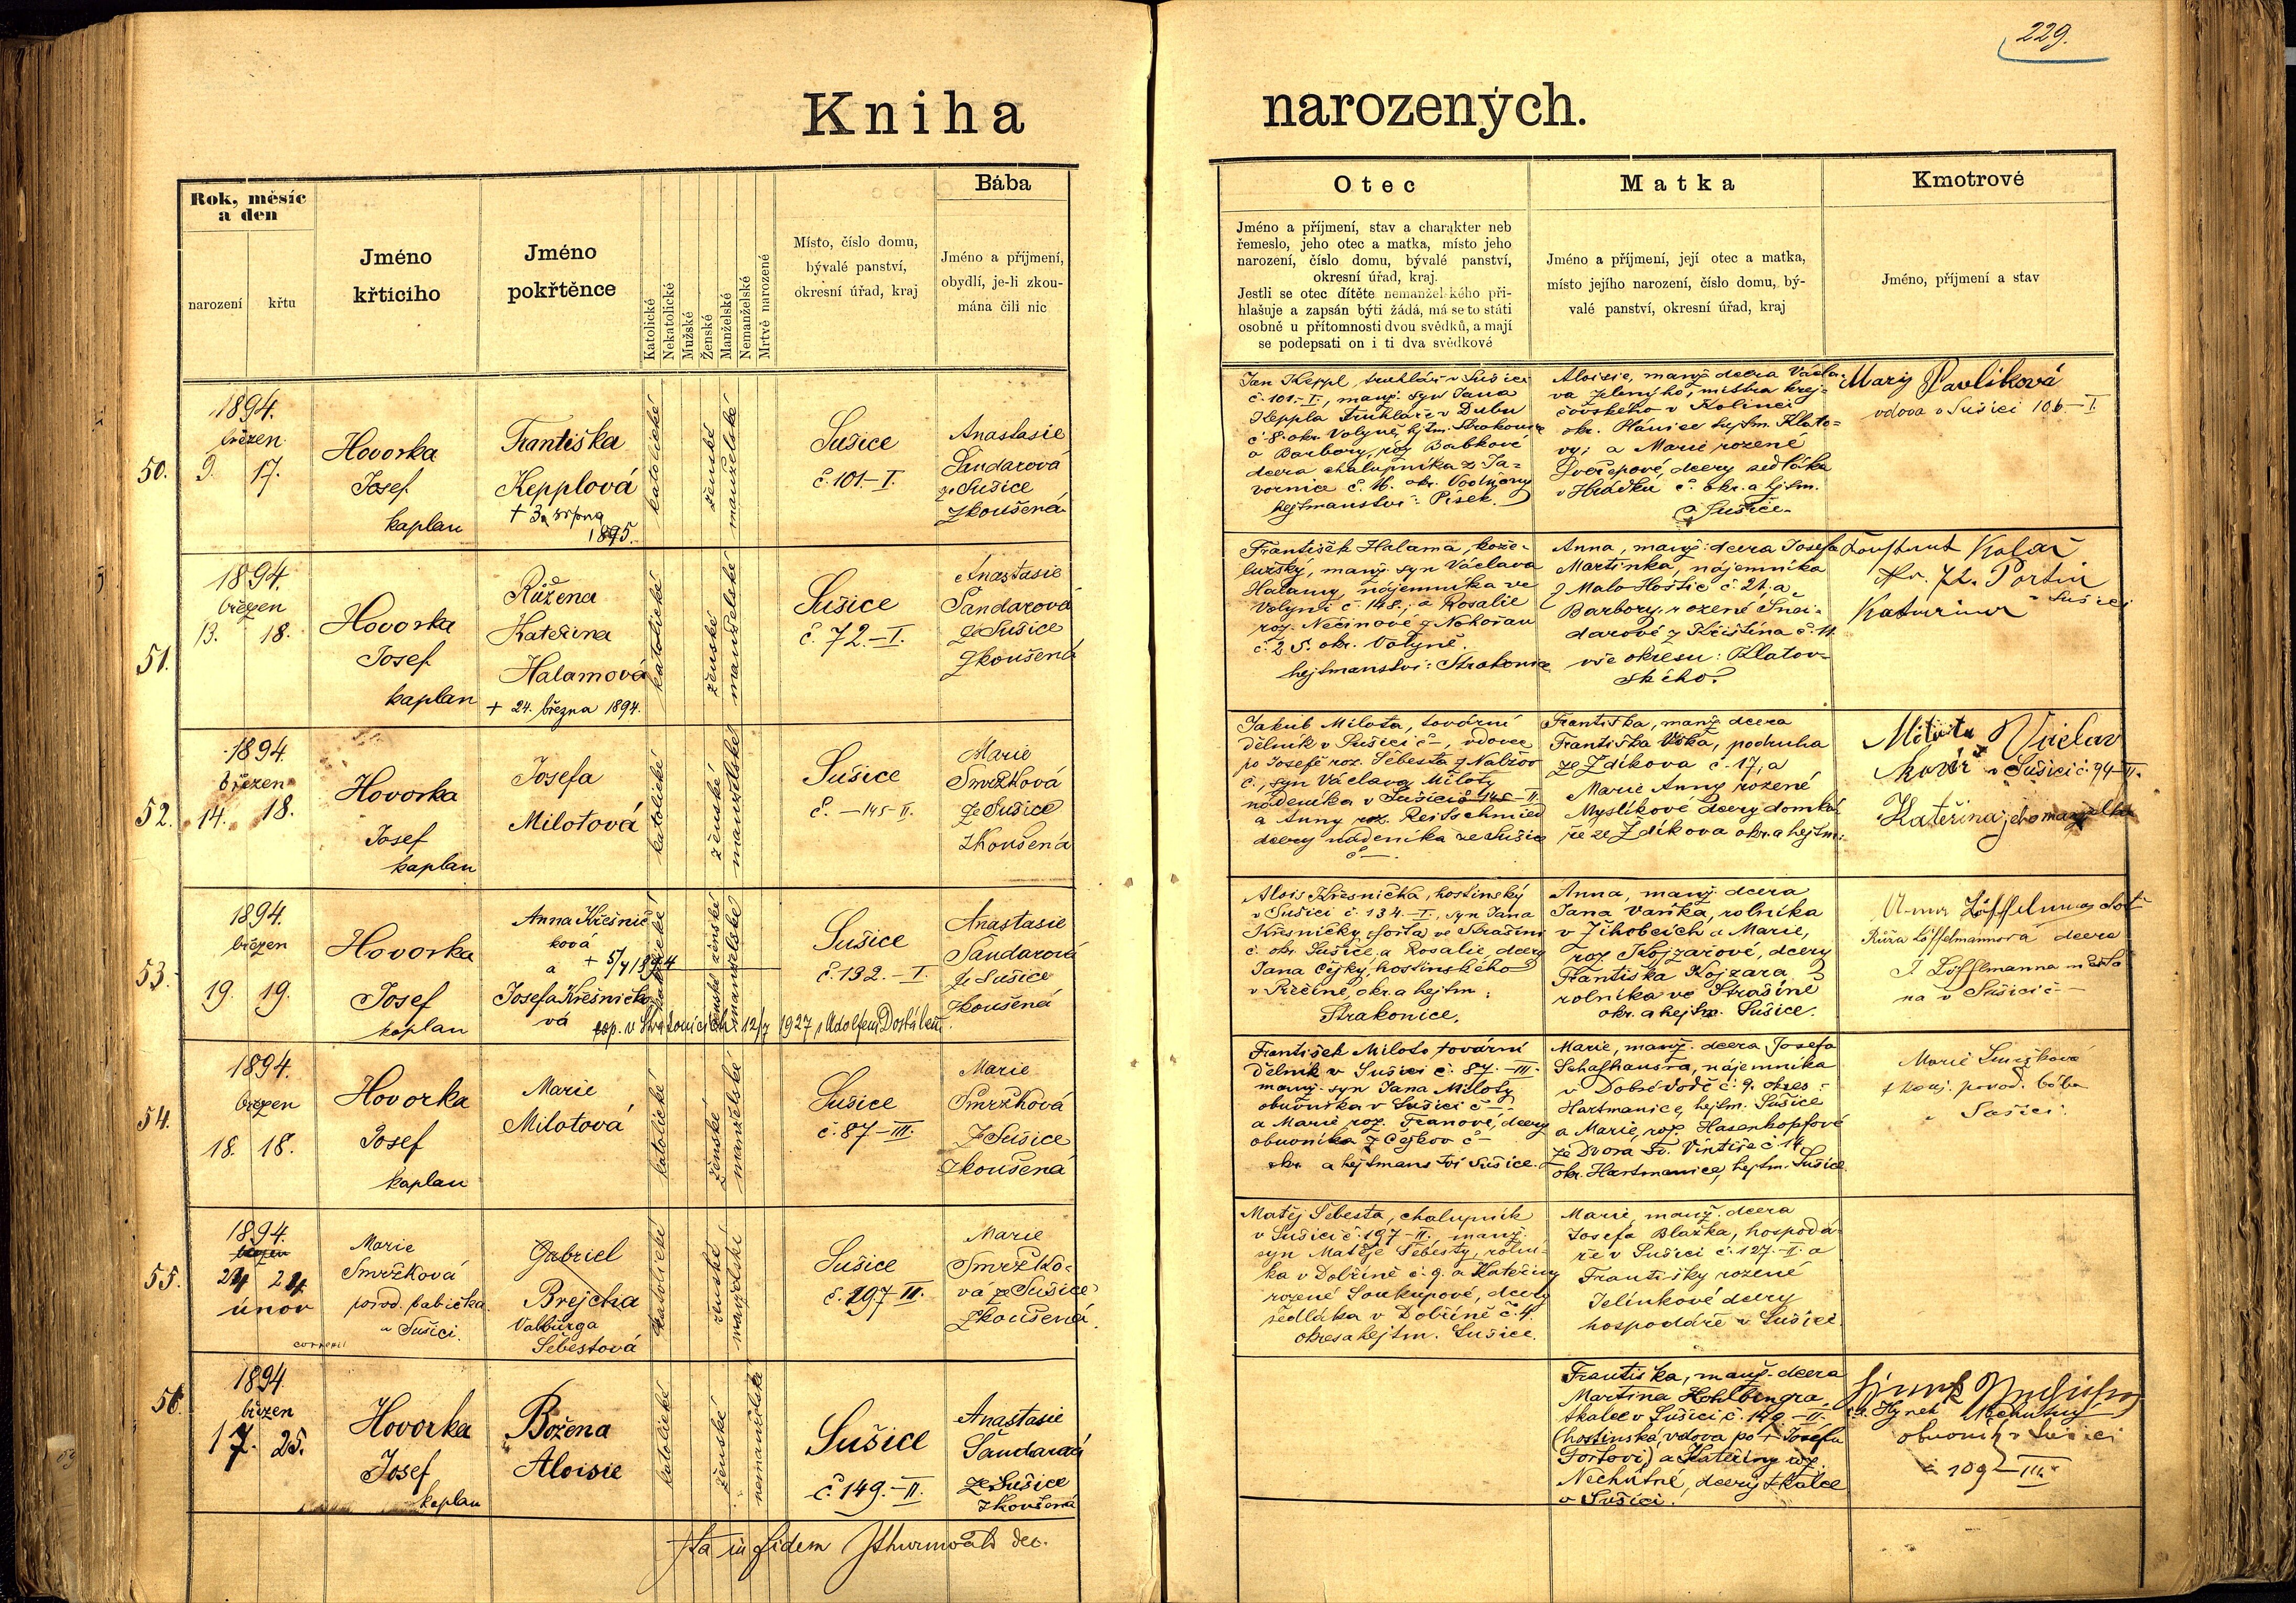 229.
Kniha narozených.
Rok, měsíc
a den
narození
křtu
Jméno
křticího
Jméno
pokřtěnce
Katolické
Nekatolické
Mužské
Ženské
Manželské
Nemanželské
Mrtvě narozené
Místo, číslo domu,
bývalé panství,
okresní úřad, kraj
Bába
Jméno a příjmení,
obydlí, je-li zkou-
mána čili nic
Otec
Jméno a příjmení, stav a charakter neb
řemeslo, jeho otec a matka, místo jeho
narození, číslo domu, bývalé panství,
okresní úřad, kraj.
Jestli se otec dítěte nemanželského při-
hlašuje a zapsán býti žádá, má se to státi
osobně u přítomnosti dvou svědků, a mají
se podepsati on i ti dva svědkové
Matka
Jméno a příjmení, její otec a matka,
místo jejího narození, číslo domu, bý-
valé panství, okresní úřad, kraj
Kmotrové
Jméno, příjmení a stav
50.
1894.
březen
9. 17.
Hovorka
Josef
kaplan
Františka
Kepplová
+ 3. srpna
1895.
katolické
ženské
manželské
Sušice
č. 101.-I.
Anastasie
Šandarová
ze Sušice
zkoušená
Jan Keppl, truhlář v Sušici
č. 101.-I., manž. syn Jana
Keppla truhláře v Dubu
č. 8. okr. Volyně, hejtm. Strakonice
a Barbory, roz. Babkové
dcera chalupníka z Ja-
vornice č. 16. okr. Vodňany
hejtmanství: Písek.
Aloisie, manž. dcera Václa-
va Zeleného, mistra krej-
čovského v Kolinci
okr. Plánice hejtm. Klato-
vy; a Marie rozené
Dvořepové, dcery sedláka
v Hrádku č. okr. a hejtm.
Sušice.
Mary Pavlíková
vdova v Sušici 106-I.
51.
1894.
březen
13. 18.
Hovorka
Josef
kaplan
Růžena
Kateřina
Halamová
+ 24. března 1894.
katolické
ženské
manželské
Sušice
č. 72.-I.
Anastasie
Šandarová
ze Sušice
zkoušená
František Halama, kože-
lužský, manž. syn Václava
Halamy, nájemníka ve
Volyni č. 148., a Rosalie
roz. Nečinové z Nehořan
č. 25. okr. Volyně.
hejtmanství: Strakonice
Anna, manž. dcera Josefa
Martínka, nájemníka
z Malo Hoštic č. 21. a
Barbory, rozené Šnei-
darové z Křištína č. 11.
vše okresu: Klatov-
ského.
Kolář
v Sušici
52.
1894.
březen
14. 18.
Hovorka
Josef
kaplan
Josefa
Milotová
katolické
ženské
manželské
Sušice
č. - 145 - II.
Marie
Smržková
ze Sušice
zkoušená
Jakub Milota, tovární
dělník v Sušici č -, vdovec
po Josefě roz. Šebesta z Nalžov
č., syn Václava Miloty
nádeníka v Sušici č 145 - II.
a Anny roz. Reitschmied
dcery nádeníka ze Sušice
č -.
Františka, manž. dcera
Františka Vlka, podruha
ze Zdíkova č. 17, a
Marie Anny rozené
Myslíkové dcery domká-
ře ze Zdíkova okr. a hejtm:
Milota Václav
kovář v Sušici č. 94-II.
Kateřina jeho manželka
53.
1894.
březen
19. 19.
Hovorka
Josef
kaplan
Anna Křesnič-
ková
a + 5/4 1894
Josefa Křesničko-
vá
cop. v Strakonicích 12/7 1927 s Adolfem Dostálem.
katolické
ženské ženské
manželské
Sušice
č. 132.-I.
Anastasie
Šandarová
ze Sušice
zkoušená
Alois Křesnička, hostinský
v Sušici č. 134.-I., syn Jana
Křesničky, forta ve Strašíni
č. okr. Sušice, a Rosalie, dcery
Jana Čejky, hostinského
v Pičíně, okr. a hejtm:
Strakonice.
Anna, manž. dcera
Jana Vaňka, rolníka
v Žihobcích a Marie,
roz. Kojzarové, dcery
Františka Kojzara,
rolníka ve Strašíně
okr. a hejtm. Sušice.
Růža Löffelmannová dcera
J. Löffelmanna
na v Sušici č -
54.
1894.
březen
18. 18.
Hovorka
Josef
kaplan
Marie
Milotová
katolické
ženské
manželské
Sušice
č. 87-III.
Marie
Smržková
z Sušice
zkoušená
František Milota tovární
dělník v Sušici č. 87.-III.
manž. syn Jana Miloty
obuvníka v Sušici č -.
a Marie, roz. Franové, dcery
obuvníka z Čejkov č -
okr. a hejtmanství Sušice.
Marie, manž. dcera Josefa
Schafhausra, nájemníka
v Dobrévodě č. 9. okres:
Hartmanice, hejtm. Sušice
a Marie, roz. Hasenkopfové
ze Dvora sv. Vintíře č. 14
okr. Hartmanice, hejtm. Sušice
Marie Smržková
zkouš. porod. bába
v Sušici.
55.
1894.
březen
24 24
únor
Marie
Smržková
porod. babička
v Sušici.
Gabriel
Brejcha
Valburga
Šebestová
katolické
ženské
manželské
Sušice
č. 197 II.
Marie
Smržko-
vá ze Sušice
zkoušená.
Matěj Šebesta, chalupník
v Sušici č. 197-II., manž.
syn Matěje Šebesty, rolní-
ka v Dobříně č. 9. a Kateřiny
rozené Soukupové, dcery
sedláka v Dobříně č. 4.
okres a hejtm. Sušice.
Marie manž. dcera
Josefa Blažka, hospodá-
ře v Sušici č. 127.-I. a
Františky rozené
Jelínkové dcery
hospodáře v Sušici.
56.
1894.
březen
17. 25.
Hovorka
Josef
kaplan
Božena
Aloisie
katolické
ženské
nemanželské
Sušice
č. 149.-II.
Anastasie
Šandarová
ze Sušice
zkoušená
Františka, manž. dcera
Martina Hohlbingra,
tkalce v Sušici, č. 149.-II.
(hostinská, vdova po + Josefu
Fortovi) a Kateřiny roz.
Nechutné, dcery tkalce
v Sušici.
Hynek Nechutný
obuvník v Sušici
č. 109-III.
Ita in fidem JThurnwald dec.